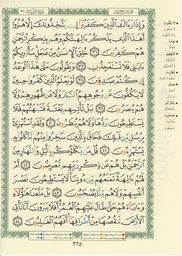 وَإِذَا رَءَاكَ ٱلَّذِينَ كَفَرُوٓا۟ إِن يَتَّخِذُونَكَ إِلَّا هُزُوًا
أَهَـٰذَا ٱلَّذِى يَذْكُرُ ءَالِهَتَكُمْ وَهُم بِذِكْرِ ٱلرَّحْمَـٰنِ
هُمْ كَـٰفِرُونَ ٣٦ خُلِقَ ٱلْإِنسَـٰنُ مِنْ عَجَلٍ سَأُو۟رِيكُمْ
ءَايَـٰتِى فَلَا تَسْتَعْجِلُونِ ٣٧ وَيَقُولُونَ مَتَىٰ هَـٰذَا ٱلْوَعْدُ
إِن كُنتُمْ صَـٰدِقِينَ ٣٨ لَوْ يَعْلَمُ ٱلَّذِينَ كَفَرُوا۟ حِينَ
لَا يَكُفُّونَ عَن وُجُوهِهِمُ ٱلنَّارَ وَلَا عَن ظُهُورِهِمْ وَلَا
هُمْ يُنصَرُونَ ٣٩ بَلْ تَأْتِيهِم بَغْتَةً فَتَبْهَتُهُمْ فَلَا
يَسْتَطِيعُونَ رَدَّهَا وَلَا هُمْ يُنظَرُونَ ٤٠ وَلَقَدِ ٱسْتُهْزِئَ
بِرُسُلٍ مِّن قَبْلِكَ فَحَاقَ بِٱلَّذِينَ سَخِرُوا۟ مِنْهُم مَّا كَانُوا۟
بِهِۦ يَسْتَهْزِءُونَ ٤١ قُلْ مَن يَكْلَؤُكُم بِٱلَّيْلِ وَٱلنَّهَارِ مِنَ
ٱلرَّحْمَـٰنِ بَلْ هُمْ عَن ذِكْرِ رَبِّهِم مُّعْرِضُونَ ٤٢ أَمْ
لَهُمْ ءَالِهَةٌ تَمْنَعُهُم مِّن دُونِنَا لَا يَسْتَطِيعُونَ نَصْرَ
أَنفُسِهِمْ وَلَا هُم مِّنَّا يُصْحَبُونَ ٤٣ بَلْ مَتَّعْنَا هَـٰٓؤُلَآءِ
وَءَابَآءَهُمْ حَتَّىٰ طَالَ عَلَيْهِمُ ٱلْعُمُرُ أَفَلَا يَرَوْنَ أَنَّا نَأْتِى
ٱلْأَرْضَ نَنقُصُهَا مِنْ أَطْرَافِهَآ أَفَهُمُ ٱلْغَـٰلِبُونَ ٤٤
٣٢٥